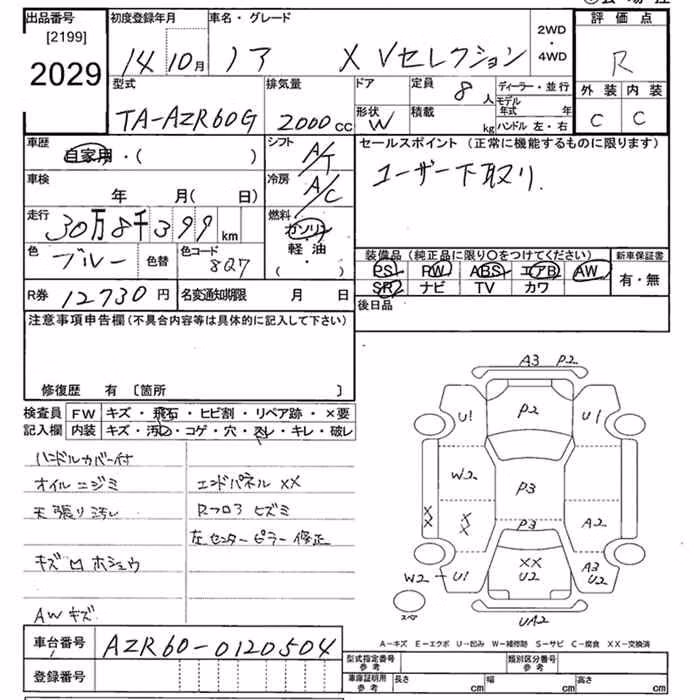 出品番号 初度登録年月 車名・グレード 2WD・4WD 評価点
[2199]
2029 14 10月 ノア X Vセレクション R
型式 排気量 ドア 定員 8人 ディーラー・並行 外装 内装
TA-AZR60G 2000cc 形状 W 積載 kg モデル年式 年 ハンドル 左・右 C C
車歴 自家用・( ) シフト A/T セールスポイント (正常に機能するものに限ります)
車検 年 月(日) 冷房 A/C ユーザー下取り.
走行 30万8千399km 燃料 ガソリン 軽油 ( )
色 ブルー 色替 色コード 8Q7 装備品 (純正品に限り○をつけてください) 新車保証書
PS PW ABS エアB AW 有・無
SR ナビ TV カワ
R券 12730円 名変通知期限 月 日 後日品
注意事項申告欄 (不具合内容等は具体的に記入して下さい)
修復歴 有 〔箇所 〕
検査員 FW キズ・飛石・ヒビ割・リペア跡・×要
記入欄 内装 キズ・汚れ・コゲ・穴・スレ・キレ・破レ
ハンドルカバー付
オイルニジミ エンドパネル XX
天張り汚れ Rフロア ヒズミ
左センターピラー 修正
キズ凹ホシュウ
AWキズ
A3 P2
U1 P2 U1
W2 P3
XX XX P3 A2
W2 U1 XX U2 A3 U2
スペア UA2
A−キズ E−エクボ U−凹み W−補修跡 S−サビ C−腐食 XX−交換済
車台番号 AZR60-0120504
型式指定番号 参考 類別区分番号 参考
登録番号 車庫証明用 参考 長さ cm 幅 cm 高さ cm